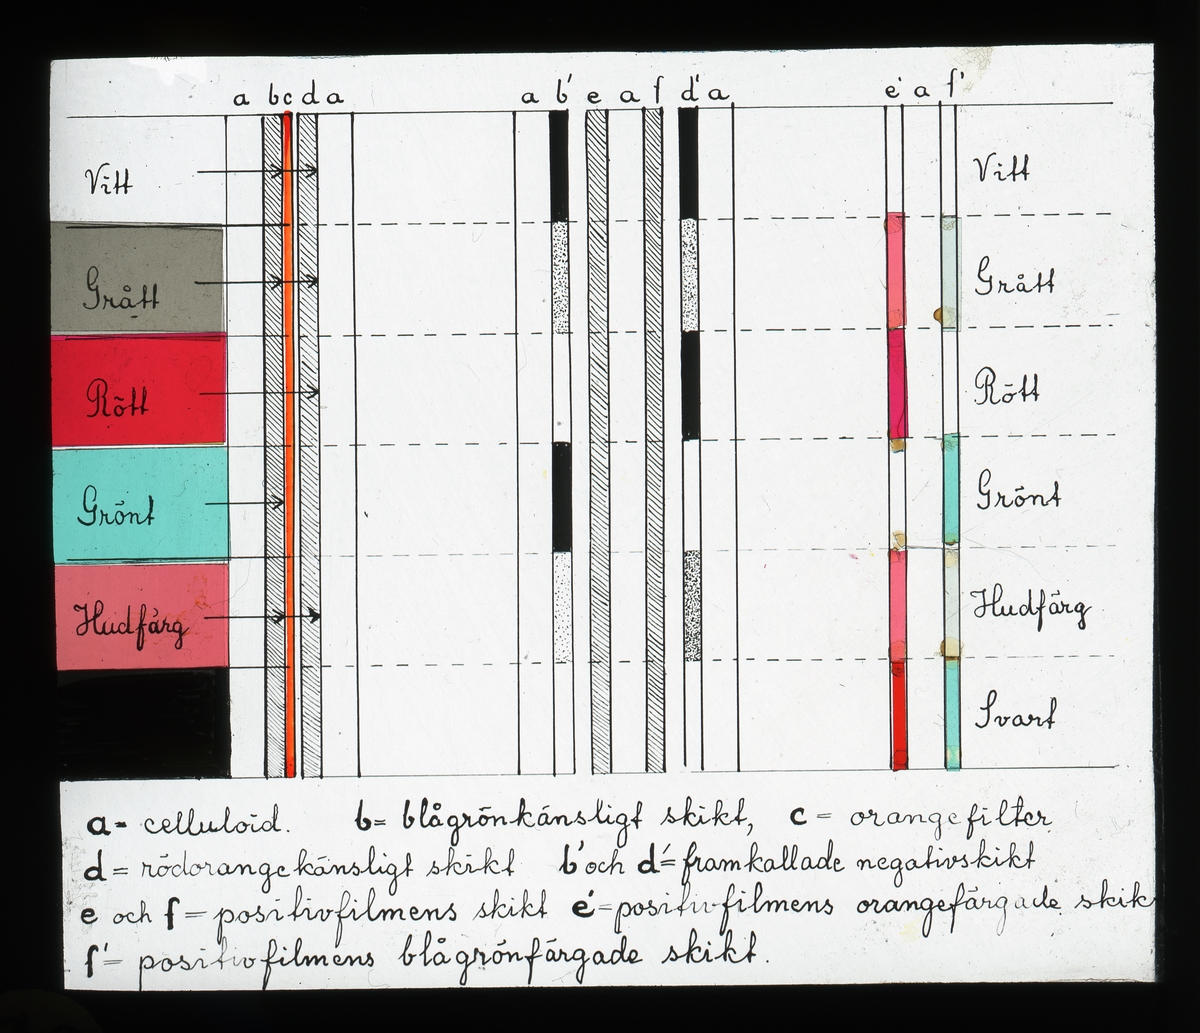 a bc d a a b′ e a f d′ a e′ a f′
Vitt Vitt
Grått Grått
Rött Rött
Grönt Grönt
Hudfärg Hudfärg
Svart
a = celluloid. b = blågrönkänsligt skikt, c = orangefilter
d = rödorangekänsligt skikt b′ och d′ = framkallade negativskikt
e och f = positivfilmens skikt e′ = positivfilmens orangefärgade skik
f′ = positivfilmens blågrönfärgade skikt.